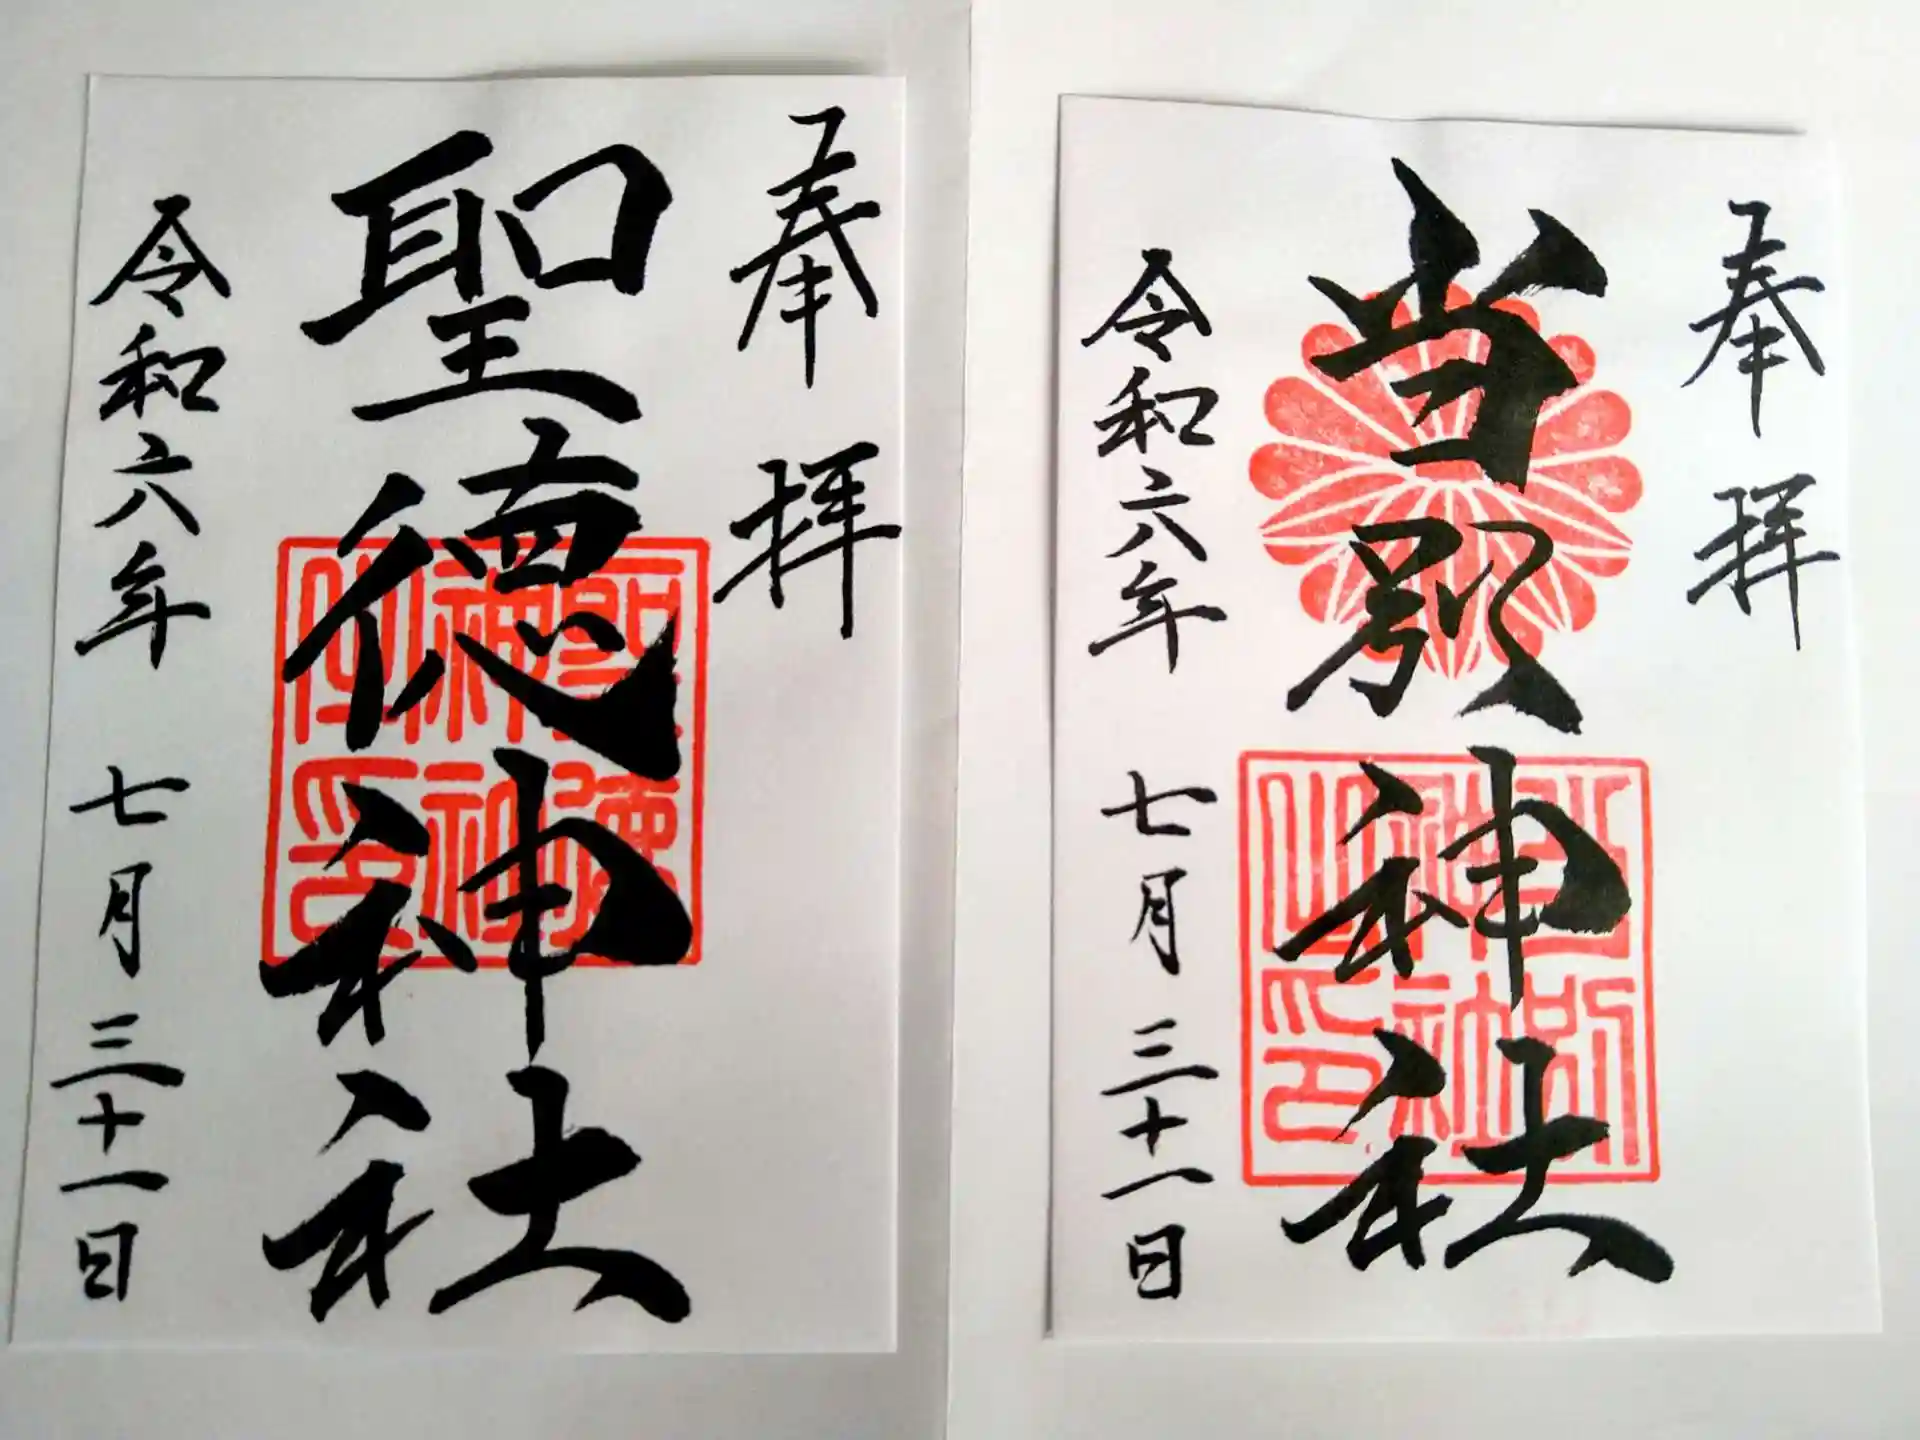 奉拝
聖徳神社
聖徳神社之印
令和六年 七月 三十一日
奉拝
当別神社
当別神社之印
令和六年 七月 三十一日